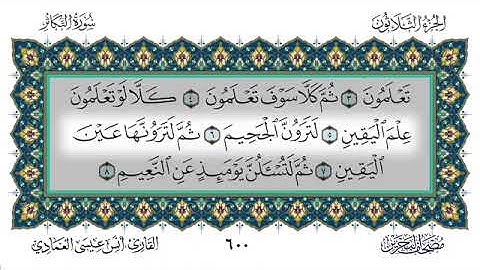 الجزء الثلاثون
سورة التكاثر
تَعْلَمُونَ ٣ ثُمَّ كَلَّا سَوْفَ تَعْلَمُونَ ٤ كَلَّا لَوْ تَعْلَمُونَ
عِلْمَ ٱلْيَقِينِ ٥ لَتَرَوُنَّ ٱلْجَحِيمَ ٦ ثُمَّ لَتَرَوُنَّهَا عَيْنَ
ٱلْيَقِينِ ٧ ثُمَّ لَتُسْـَٔلُنَّ يَوْمَئِذٍ عَنِ ٱلنَّعِيمِ ٨
٦٠٠
القارئ أنس عيسى العمادي